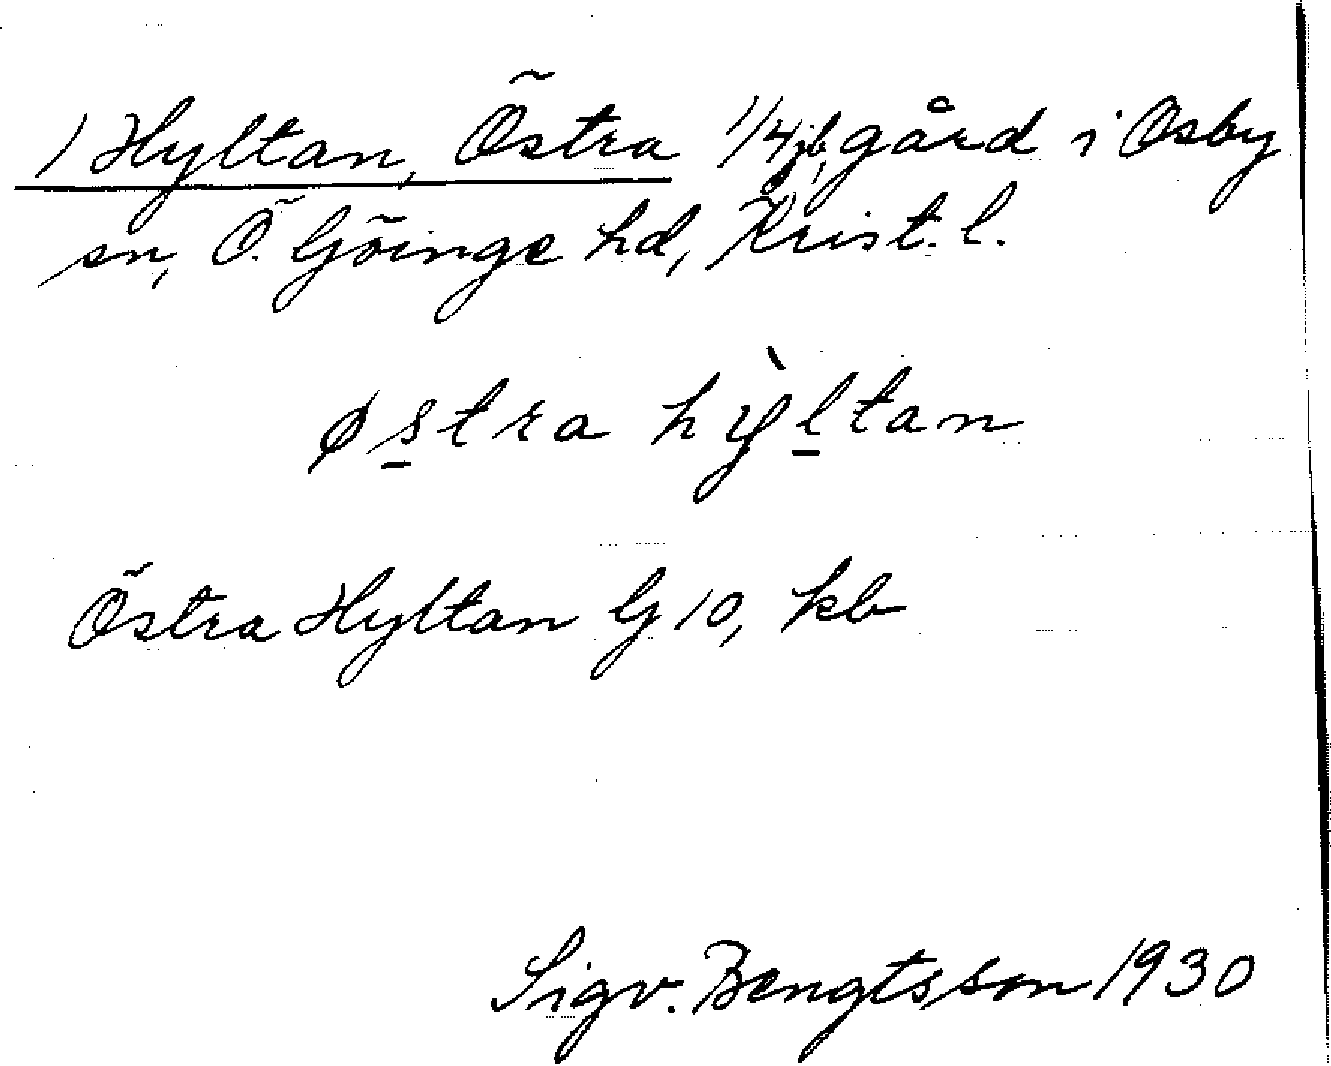 1 Hyltan, Östra 1/4 jb. gård i Osby
sn, Ö. Göinge hd, Krist. l.
østra hỳltan
Östra Hyltan G 10, kb
Sigv. Bengtsson 1930